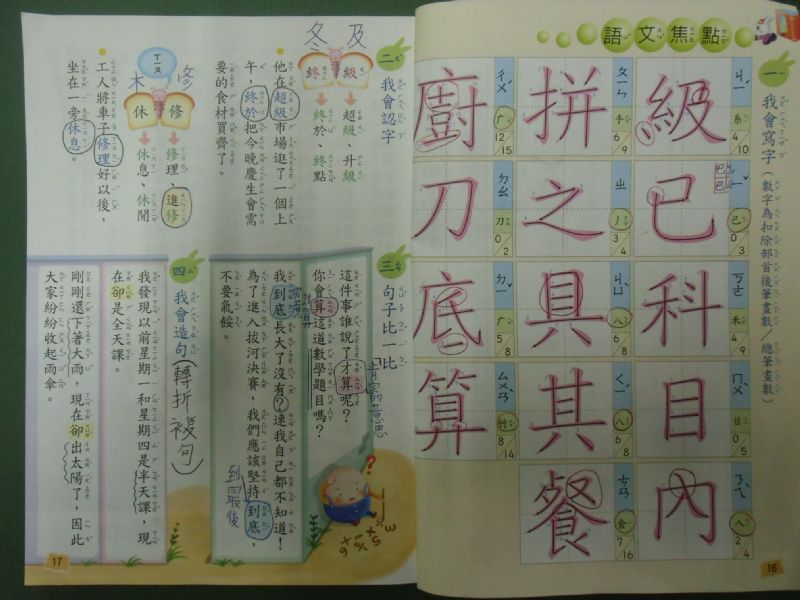 語文焦點
一 我會寫字(數字為扣除部首後筆畫數/總筆畫數)
級 ㄐㄧˊ 糸 4/10
已 ㄧˇ 己 0/3
科 ㄎㄜ 禾 4/9
目 ㄇㄨˋ 目 0/5
內 ㄋㄟˋ 入 2/4
拼 ㄆㄧㄣ 手 6/9
之 ㄓ 丿 3/4
具 ㄐㄩˋ 八 6/8
其 ㄑㄧˊ 八 6/8
餐 ㄘㄢ 食 7/16
廚 ㄔㄨˊ 广 12/15
刀 ㄉㄠ 刀 0/2
底 ㄉㄧˇ 广 5/8
算 ㄙㄨㄢˋ 竹 8/14
16
二 我會認字
及
級
超級、升級
冬
終
終於、終點
他在超級市場逛了一個上
午,終於把今晚慶生會需
要的食材買齊了。
ㄒㄧㄡ
修
修
修理、進修
木
休
休息、休閒
工人將車子修理好以後,
坐在一旁休息。
三 句子比一比
這件事誰說了才算呢?
你會算這道數學題目嗎?
我到底長大了沒有?連我自己都不知道!
為了進入拔河決賽,我們應該堅持到底,
不要氣餒。
到最後
四 我會造句(轉折複句)
我發現以前星期一和星期四是半天課,現
在卻是全天課。
剛剛還下著大雨,現在卻出太陽了,因此
大家紛紛收起雨傘。
17